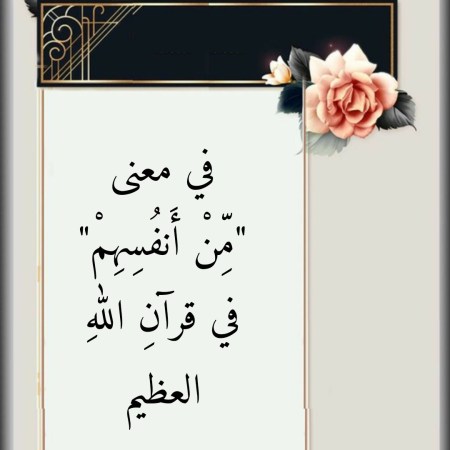 في معنى
"مِّنْ أَنفُسِهِمْ"
في قرآنِ اللهِ
العظيم